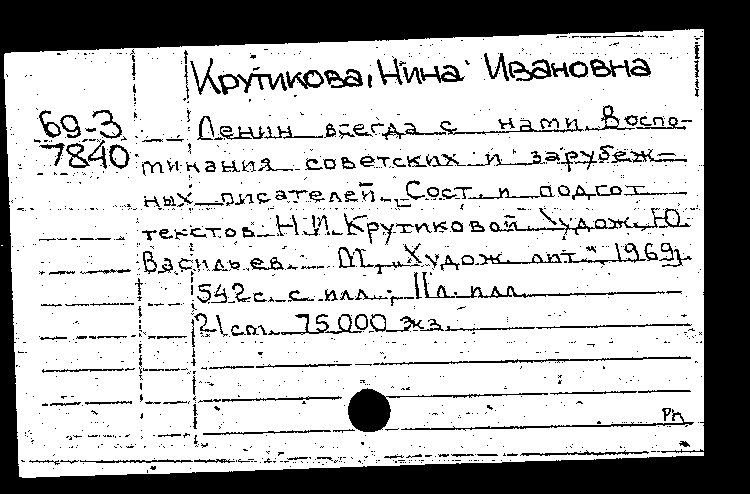 Крутикова, Нина Ивановна
69-3
7840
Ленин всегда с нами. Воспо-
минания советских и зарубеж-
ных писателей. Сост. и подгот.
текстов Н.И. Крутиковой. Худож. Ю.
Васильев. М., „Худож. лит.“, 1969г.
542с. с илл.; 11л. илл.
21см. 75.000 экз.